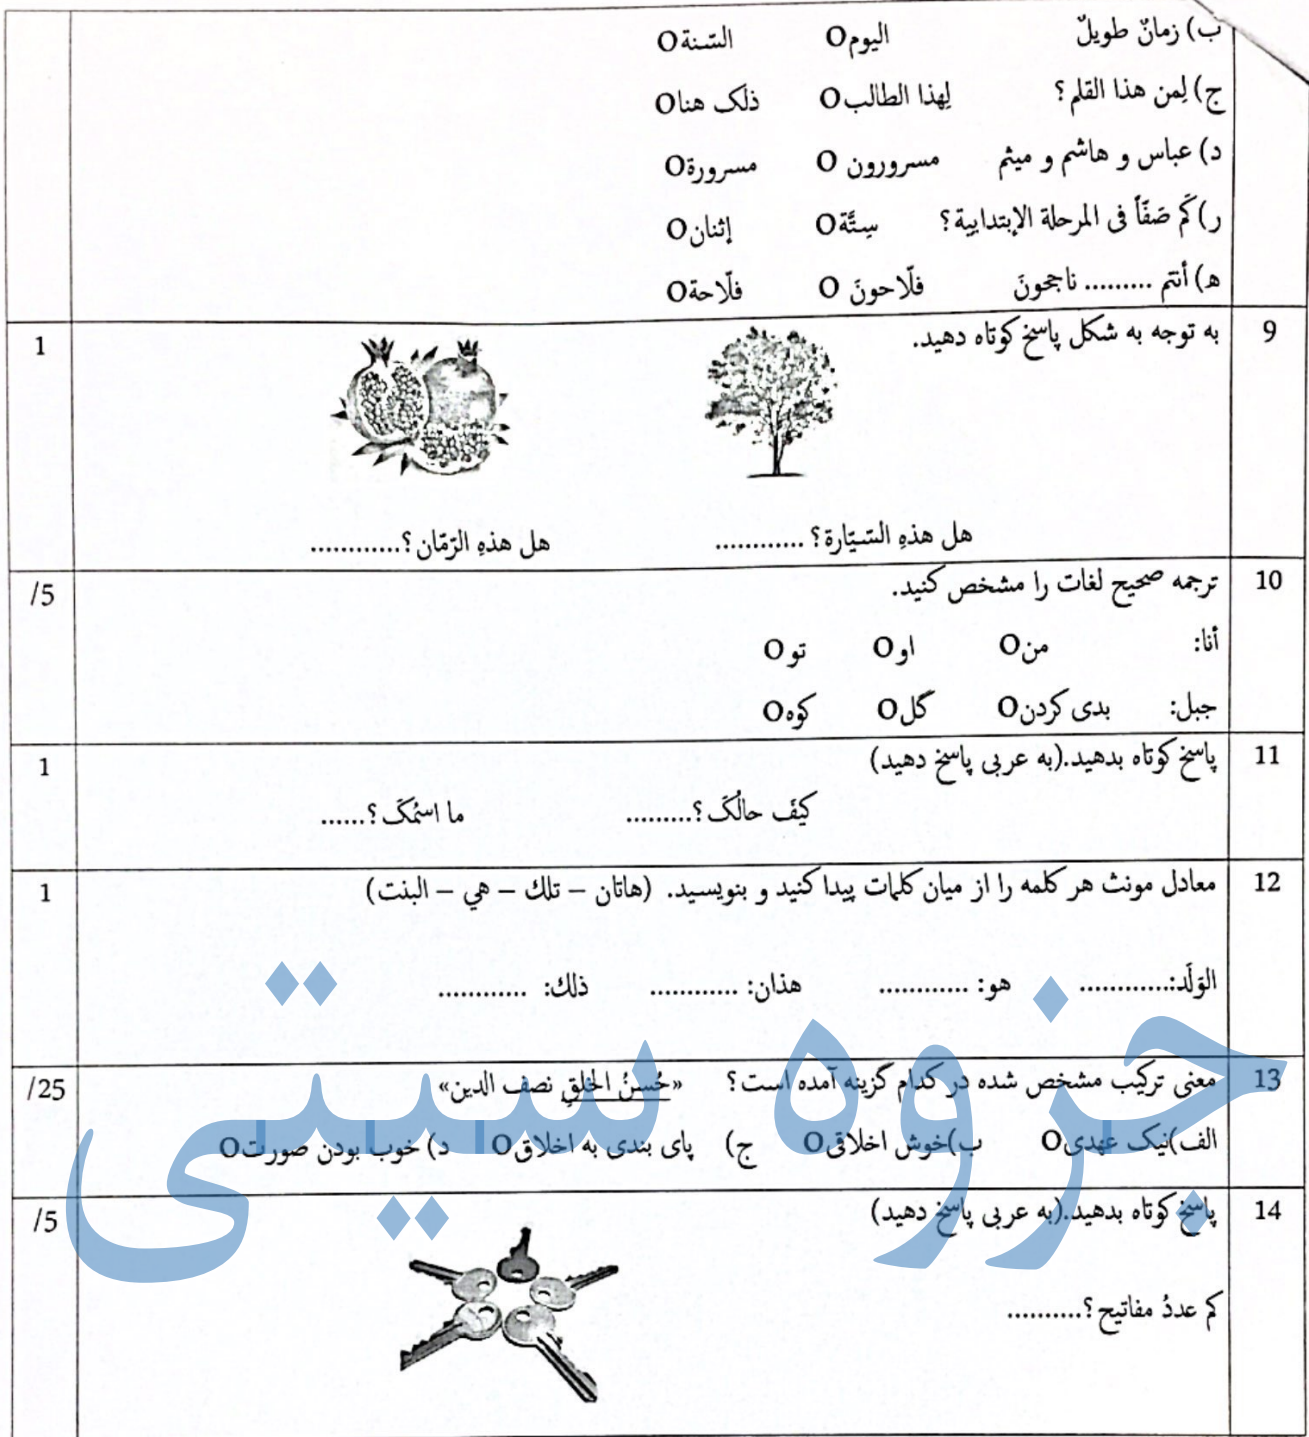 ب) زمانٌ طویلٌ الیومO السّنةO
ج) لِمن هذا القلم؟ لِهذا الطالبO ذلک هناO
د) عباس و هاشم و میثم مسرورون O مسرورةO
ر)کَم صَفّاً فی المرحلة الإبتدایية؟ سِتَّةO إثنانO
ه) أنتم ......... ناجحونَ فلّاحونَ O فلّاحةO
9 به توجه به شکل پاسخ کوتاه دهید. 1
هل هذهِ السّیّارة؟ ............ هل هذهِ الرّمّان؟............
10 ترجمه صحیح لغات را مشخص کنید. /5
أنا: منO اوO توO
جبل: بدی کردنO گلO کوهO
11 پاسخ کوتاه بدهید.(به عربی پاسخ دهید) 1
کیَفَ حالُکَ؟......... ما اسمُکَ؟......
12 معادل مونث هر کلمه را از میان کلمات پیدا کنید و بنویسید. (هاتان – تلك – هي – البنت) 1
الوَلَد:............ هو: ............ هذان: ............ ذلك: ............
13 معنی ترکیب مشخص شده در کدام گزینه آمده است؟ «حُسنُ الخلقِ نصف الدین» /25
الف)نیک عهدیO ب)خوش اخلاقیO ج) پای بندی به اخلاقO د) خوب بودن صورتO
جزوه سیتی
14 پاسخ کوتاه بدهید.(به عربی پاسخ دهید) /5
کم عددُ مفاتیح؟..........